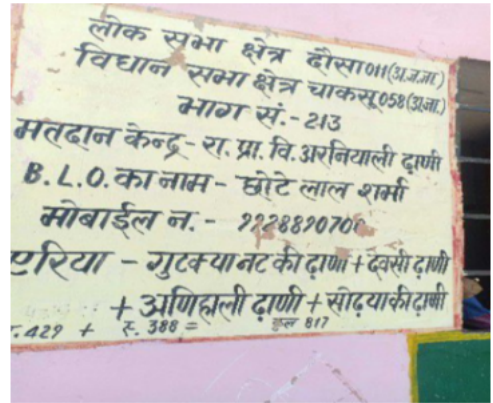 लोक सभा क्षेत्र दौसा011(अ.ज.जा.)
विधान सभा क्षेत्र चाकसू058(अ.जा.)
भाग सं.- 213
मतदान केन्द्र-रा. प्रा. वि. अरनियाली ढ़ाणी
B.L.O. का नाम- छोटे लाल शर्मा
मोबाईल न. -
एरिया - गुटक्या नट की ढ़ाणी + दवसी ढ़ाणी
+ अणिहाली ढ़ाणी + सोढ़या की ढ़ाणी
429 + स्. 388 = कुल 817